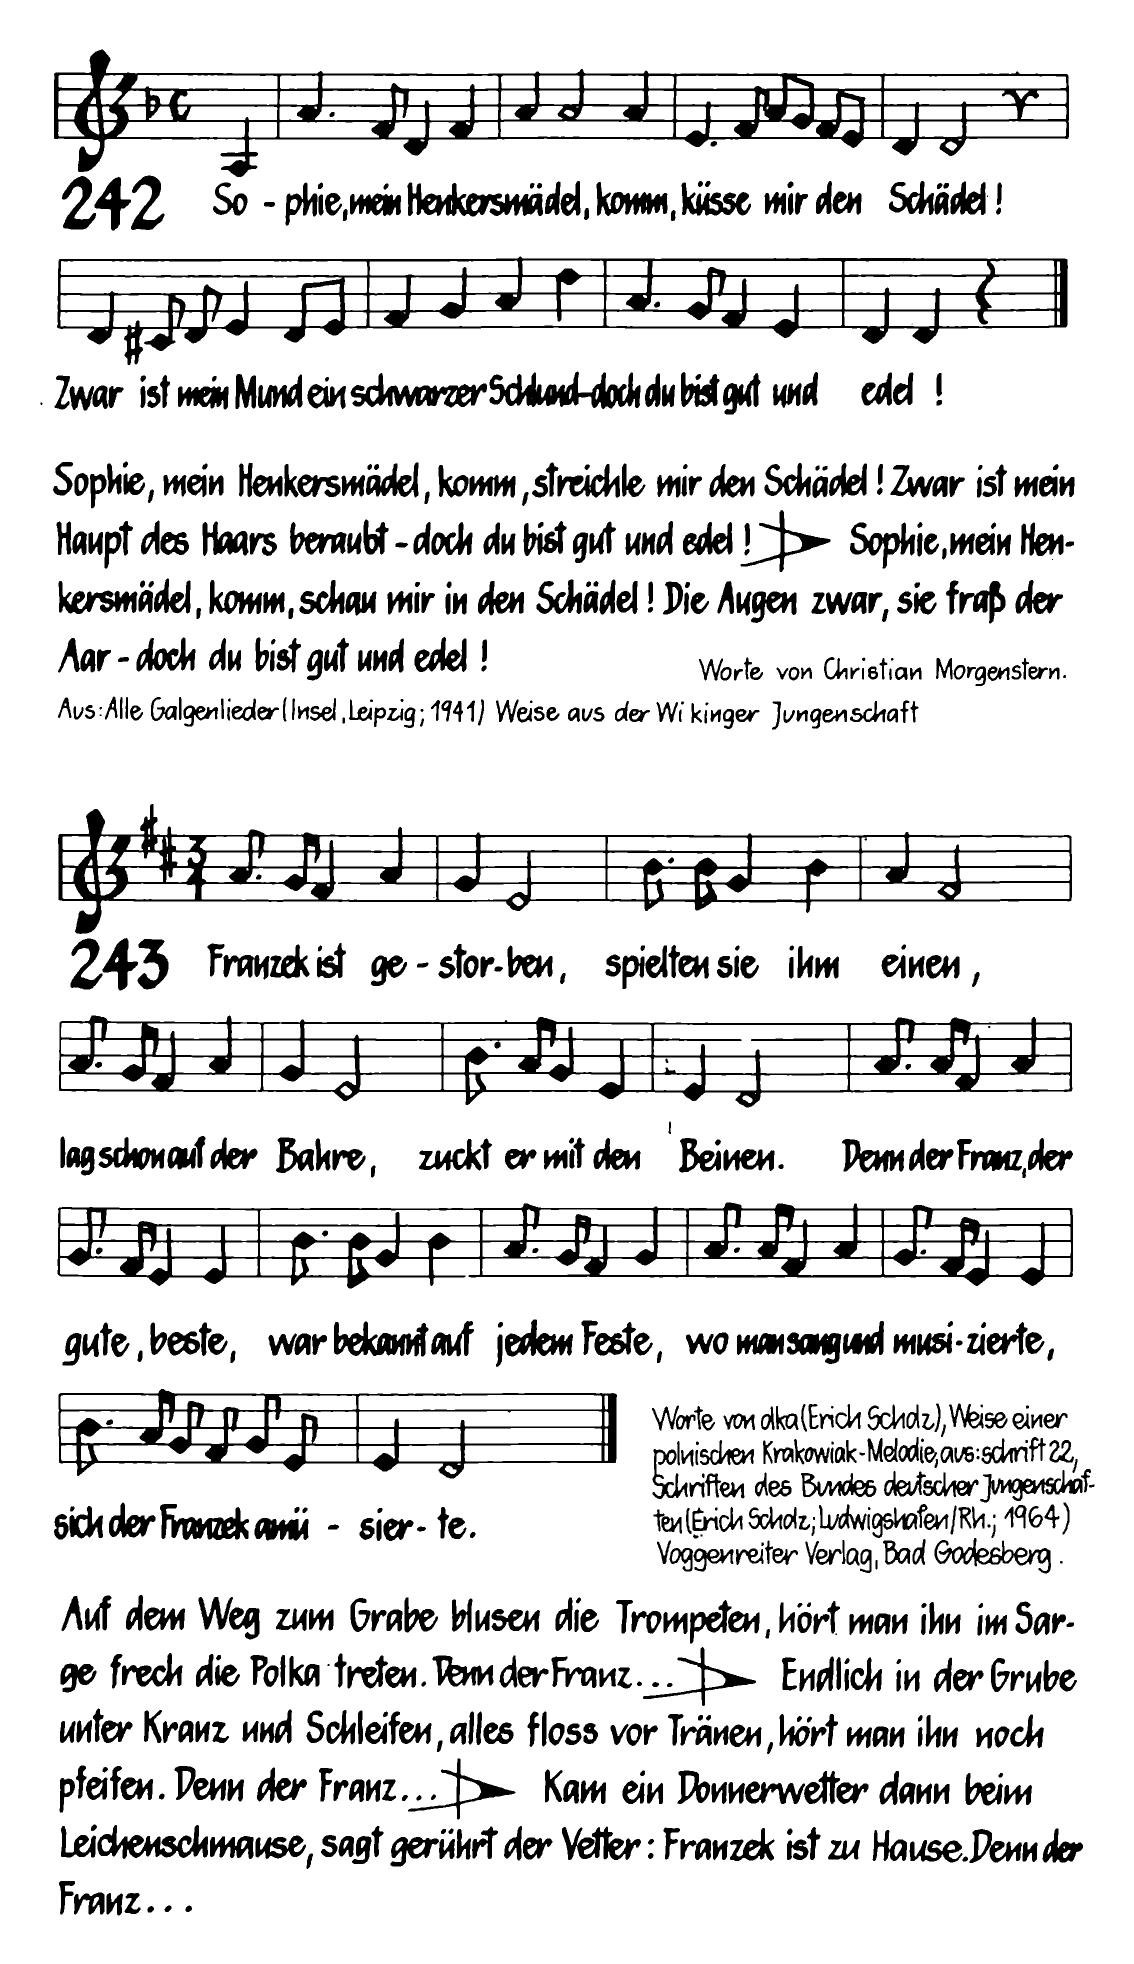 242 So - phie, mein Henkersmädel, komm, küsse mir den Schädel!
Zwar ist mein Mund ein schwarzer Schlund – doch du bist gut und edel !
Sophie, mein Henkersmädel, komm, streichle mir den Schädel! Zwar ist mein
Haupt des Haars beraubt – doch du bist gut und edel! Sophie, mein Hen-
kersmädel, komm, schau mir in den Schädel! Die Augen zwar, sie fraß der
Aar – doch du bist gut und edel !
Worte von Christian Morgenstern.
Aus: Alle Galgenlieder (Insel, Leipzig; 1941) Weise aus der Wikinger Jungenschaft
243 Franzek ist ge - stor - ben, spielten sie ihm einen,
lag schon auf der Bahre, zuckt er mit den Beinen. Denn der Franz, der
gute, beste, war bekannt auf jedem Feste, wo man sang und musi - zierte,
sich der Franzek amü - sier - te.
Worte von olka (Erich Scholz), Weise einer
polnischen Krakowiak-Melodie, aus: schrift 22,
Schriften des Bundes deutscher Jungenschaf-
ten (Erich Scholz; Ludwigshafen/Rh.; 1964)
Voggenreiter Verlag, Bad Godesberg.
Auf dem Weg zum Grabe blusen die Trompeten, hört man ihn im Sar-
ge frech die Polka treten. Denn der Franz... Endlich in der Grube
unter Kranz und Schleifen, alles floss vor Tränen, hört man ihn noch
pfeifen. Denn der Franz... Kam ein Donnerwetter dann beim
Leichenschmause, sagt gerührt der Vetter: Franzek ist zu Hause. Denn der
Franz...